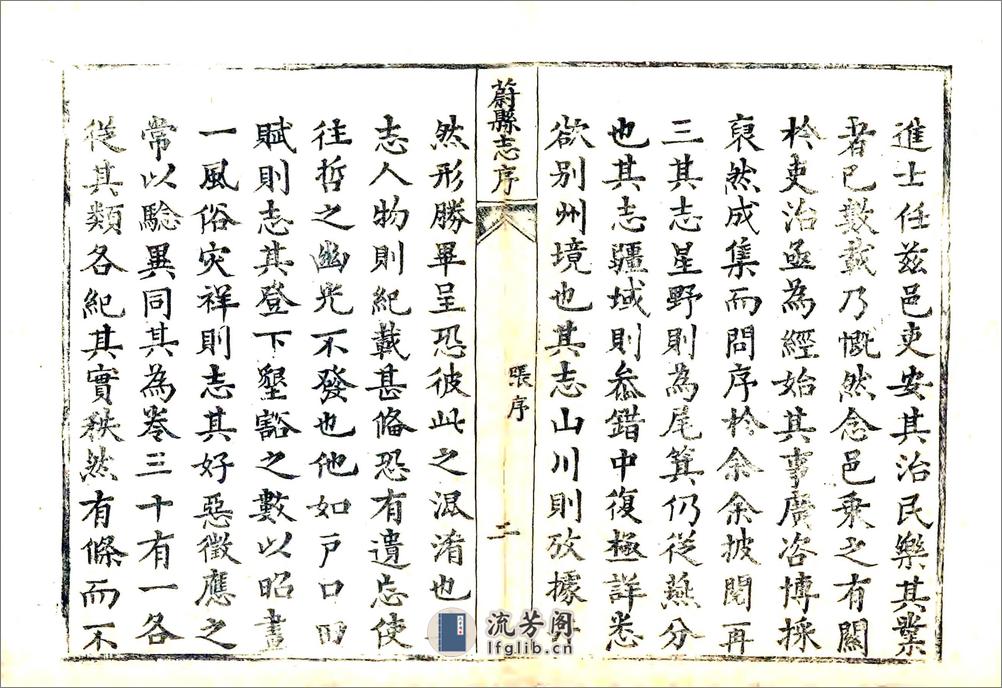 進士任兹邑吏安其治民樂其業
者已數載乃慨然念邑乗之有闕
扵吏治亟為經始其事廣咨博採
裒然成集而問序扵余余披閱再
三其志星野則為尾箕仍從燕分
也其志疆域則叅錯中復極詳悉
欲别州境也其志山川則攷據
蔚縣志序
張序
二
然形勝畢呈恐彼此之混淆也
志人物則紀載甚俻恐有遺忘使
往哲之幽光不發也他如戸口田
賦則志其登下墾豁之數以昭畫
一風俗灾祥則志其好惡徵應之
常以驗異同其為卷三十有一各
從其類各紀其實秩然有條而不
流芳阁
lfglib.cn